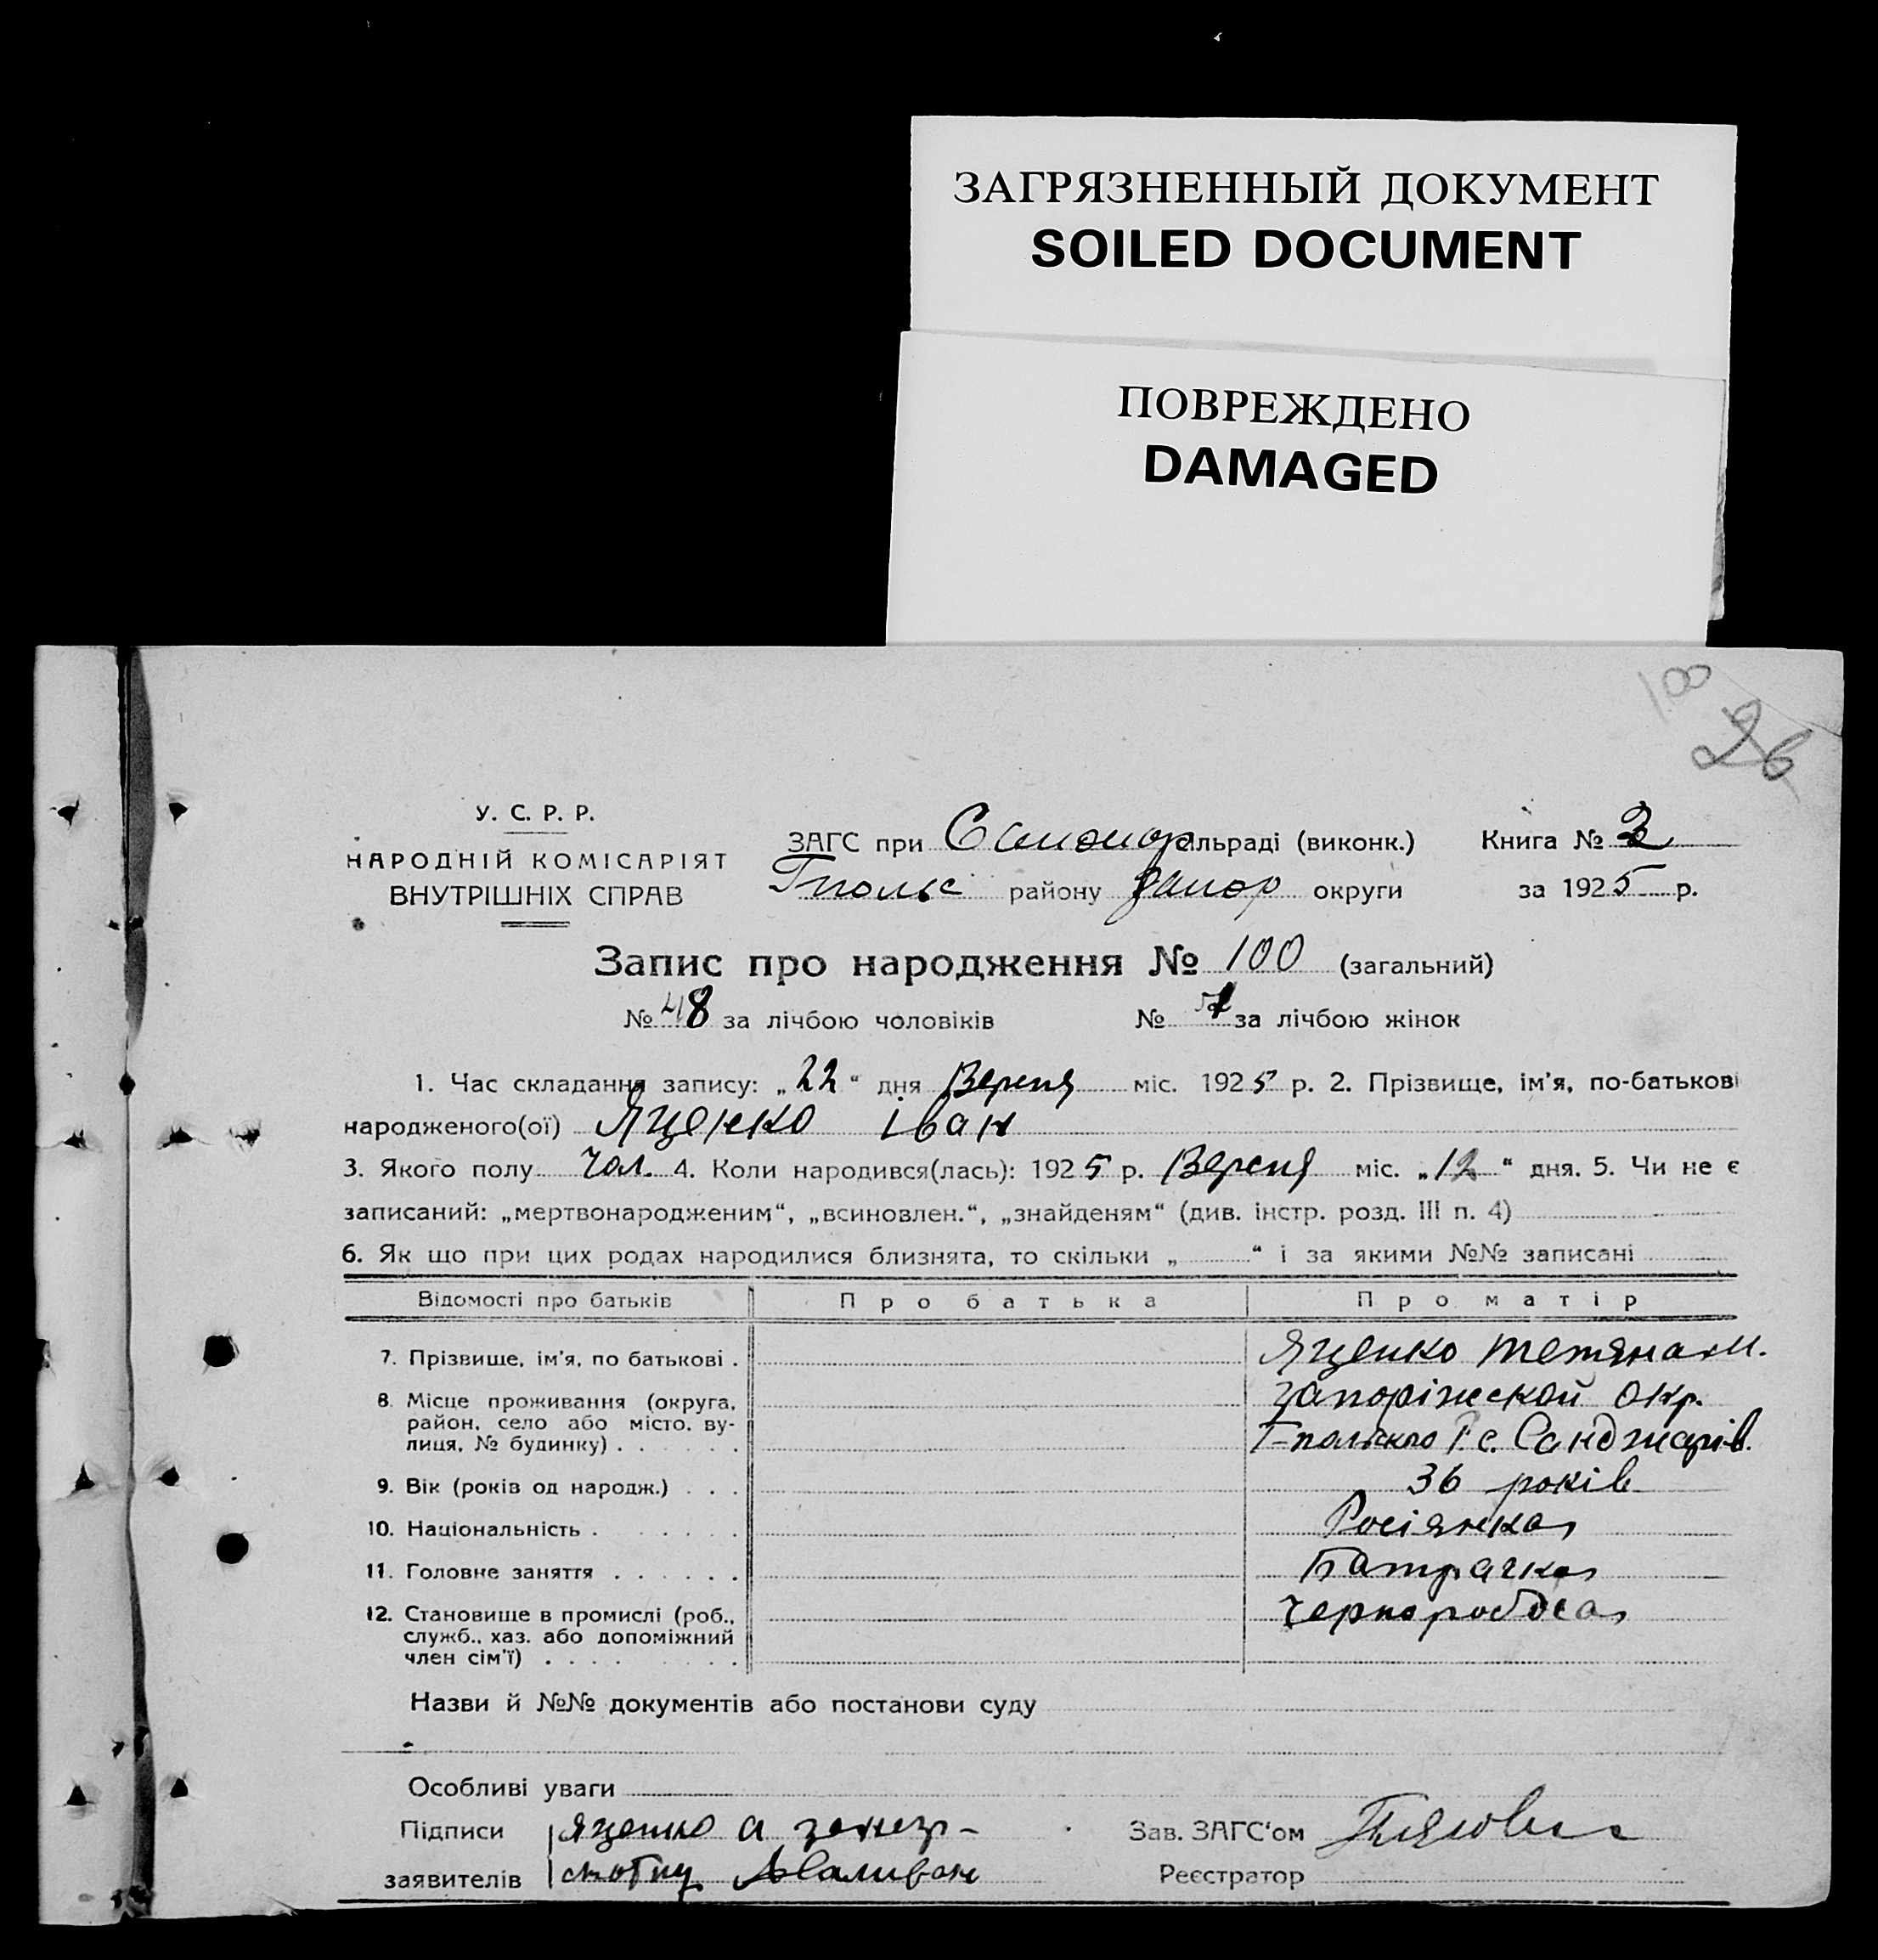 ЗАГРЯЗНЕННЫЙ ДОКУМЕНТ
SOILED DOCUMENT
ПОВРЕЖДЕНО
DAMAGED
100
26
У. С. Р. Р.
НАРОДНІЙ КОМІСАРІЯТ
ВНУТРІШНІХ СПРАВ
ЗАГС при сільраді (виконк.) Книга № 2
Гпольс району Запор округи за 1925 р.
Запис про народження № 100 (загальний)
№ 48 за лічбою чоловіків № за лічбою жінок
1. Час складання запису: „22“ дня Вересня міс. 1925 р. 2. Прізвище, ім'я, по-батькові
народженого(ої) Яценко Іван
3. Якого полу чол. 4. Коли народився(лась): 1925 р. Вересня міс. „12“ дня. 5. Чи не є
записаний: „мертвонародженим“, „всиновлен.“, „знайденям“ (див. інстр. розд. III п. 4)
6. Як що при цих родах народилися близнята, то скільки „ “ і за якими №№ записані
Відомості про батьків Про батька Про матір
7. Прізвище, ім'я, по батькові . Яценко Тетяна М.
8. Місце проживання (округа, запоріжской окр.
район, село або місто, ву- Г-польского Р. с. Санджарів.
лиця, № будинку) . . . . . .
9. Вік (років од народж.) . . . 36 років
10. Національність . . . . . . . Росіянка
11. Головне заняття . . . . . . Батрачка
12. Становище в промислі (роб., чернороб
служб., хаз. або допоміжний
член сім'ї) . . . . . . . .
Назви й №№ документів або постанови суду
Особливі уваги
Підписи Яценко а Зав. ЗАГС'ом
заявителів Реєстратор